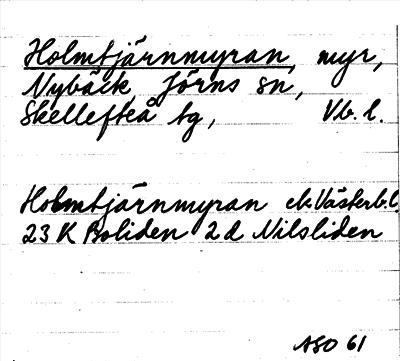 Holmtjärnmyran, myr,
Nybäck Jörns sn,
Skellefteå tg, Vb. l.
Holmtjärnmyran ek. Västerb. l.
23 K Boliden 2 d Nilsliden
ASO 61